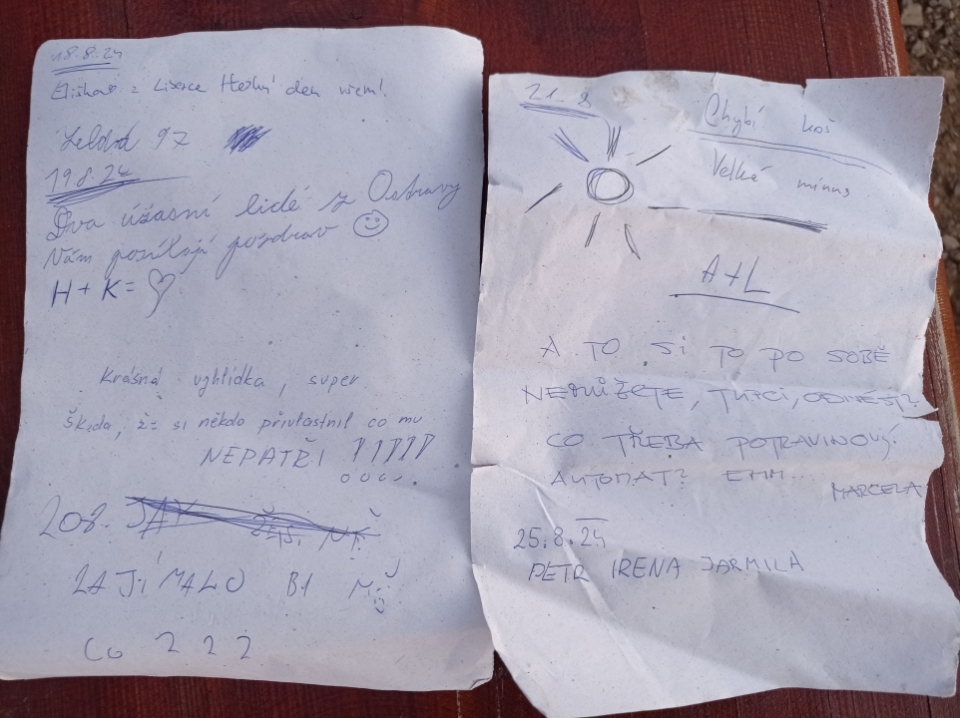 18.8.24
Eliška z Liberce Hezký den všem!
97
19.8.24
Dva úžasní lidé z Ostravy
Vám posílají pozdrav
H + K =
Krásná vyhlídka, super.
Škoda, že si někdo přivlastnil co mu
NEPATŘÍ !!!!!
20.8.
ZAJÍMALO BY MĚ
CO 2 2 2
21.8
Chybí koš
Velké mínus
A+L
A TO SI TO PO SOBĚ
NEMŮŽETE, TUPCI, ODNÉST?
CO TŘEBA POTRAVINOVÝ
AUTOMAT? EHM...
MARCELA
25.8.24
PETR IRENA JARMILA